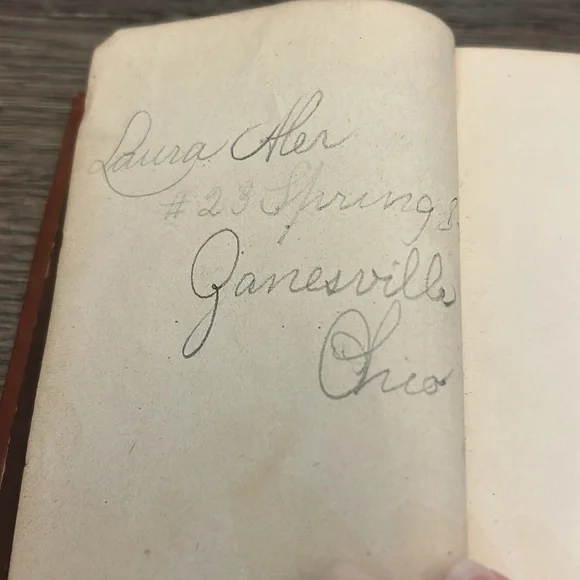 Laura Aler
# 23 Spring S
Zanesville
Ohio